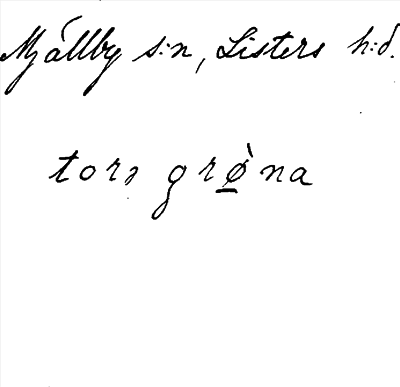 Mjällby s:n, Listers h:d.
torə grø̱̀na